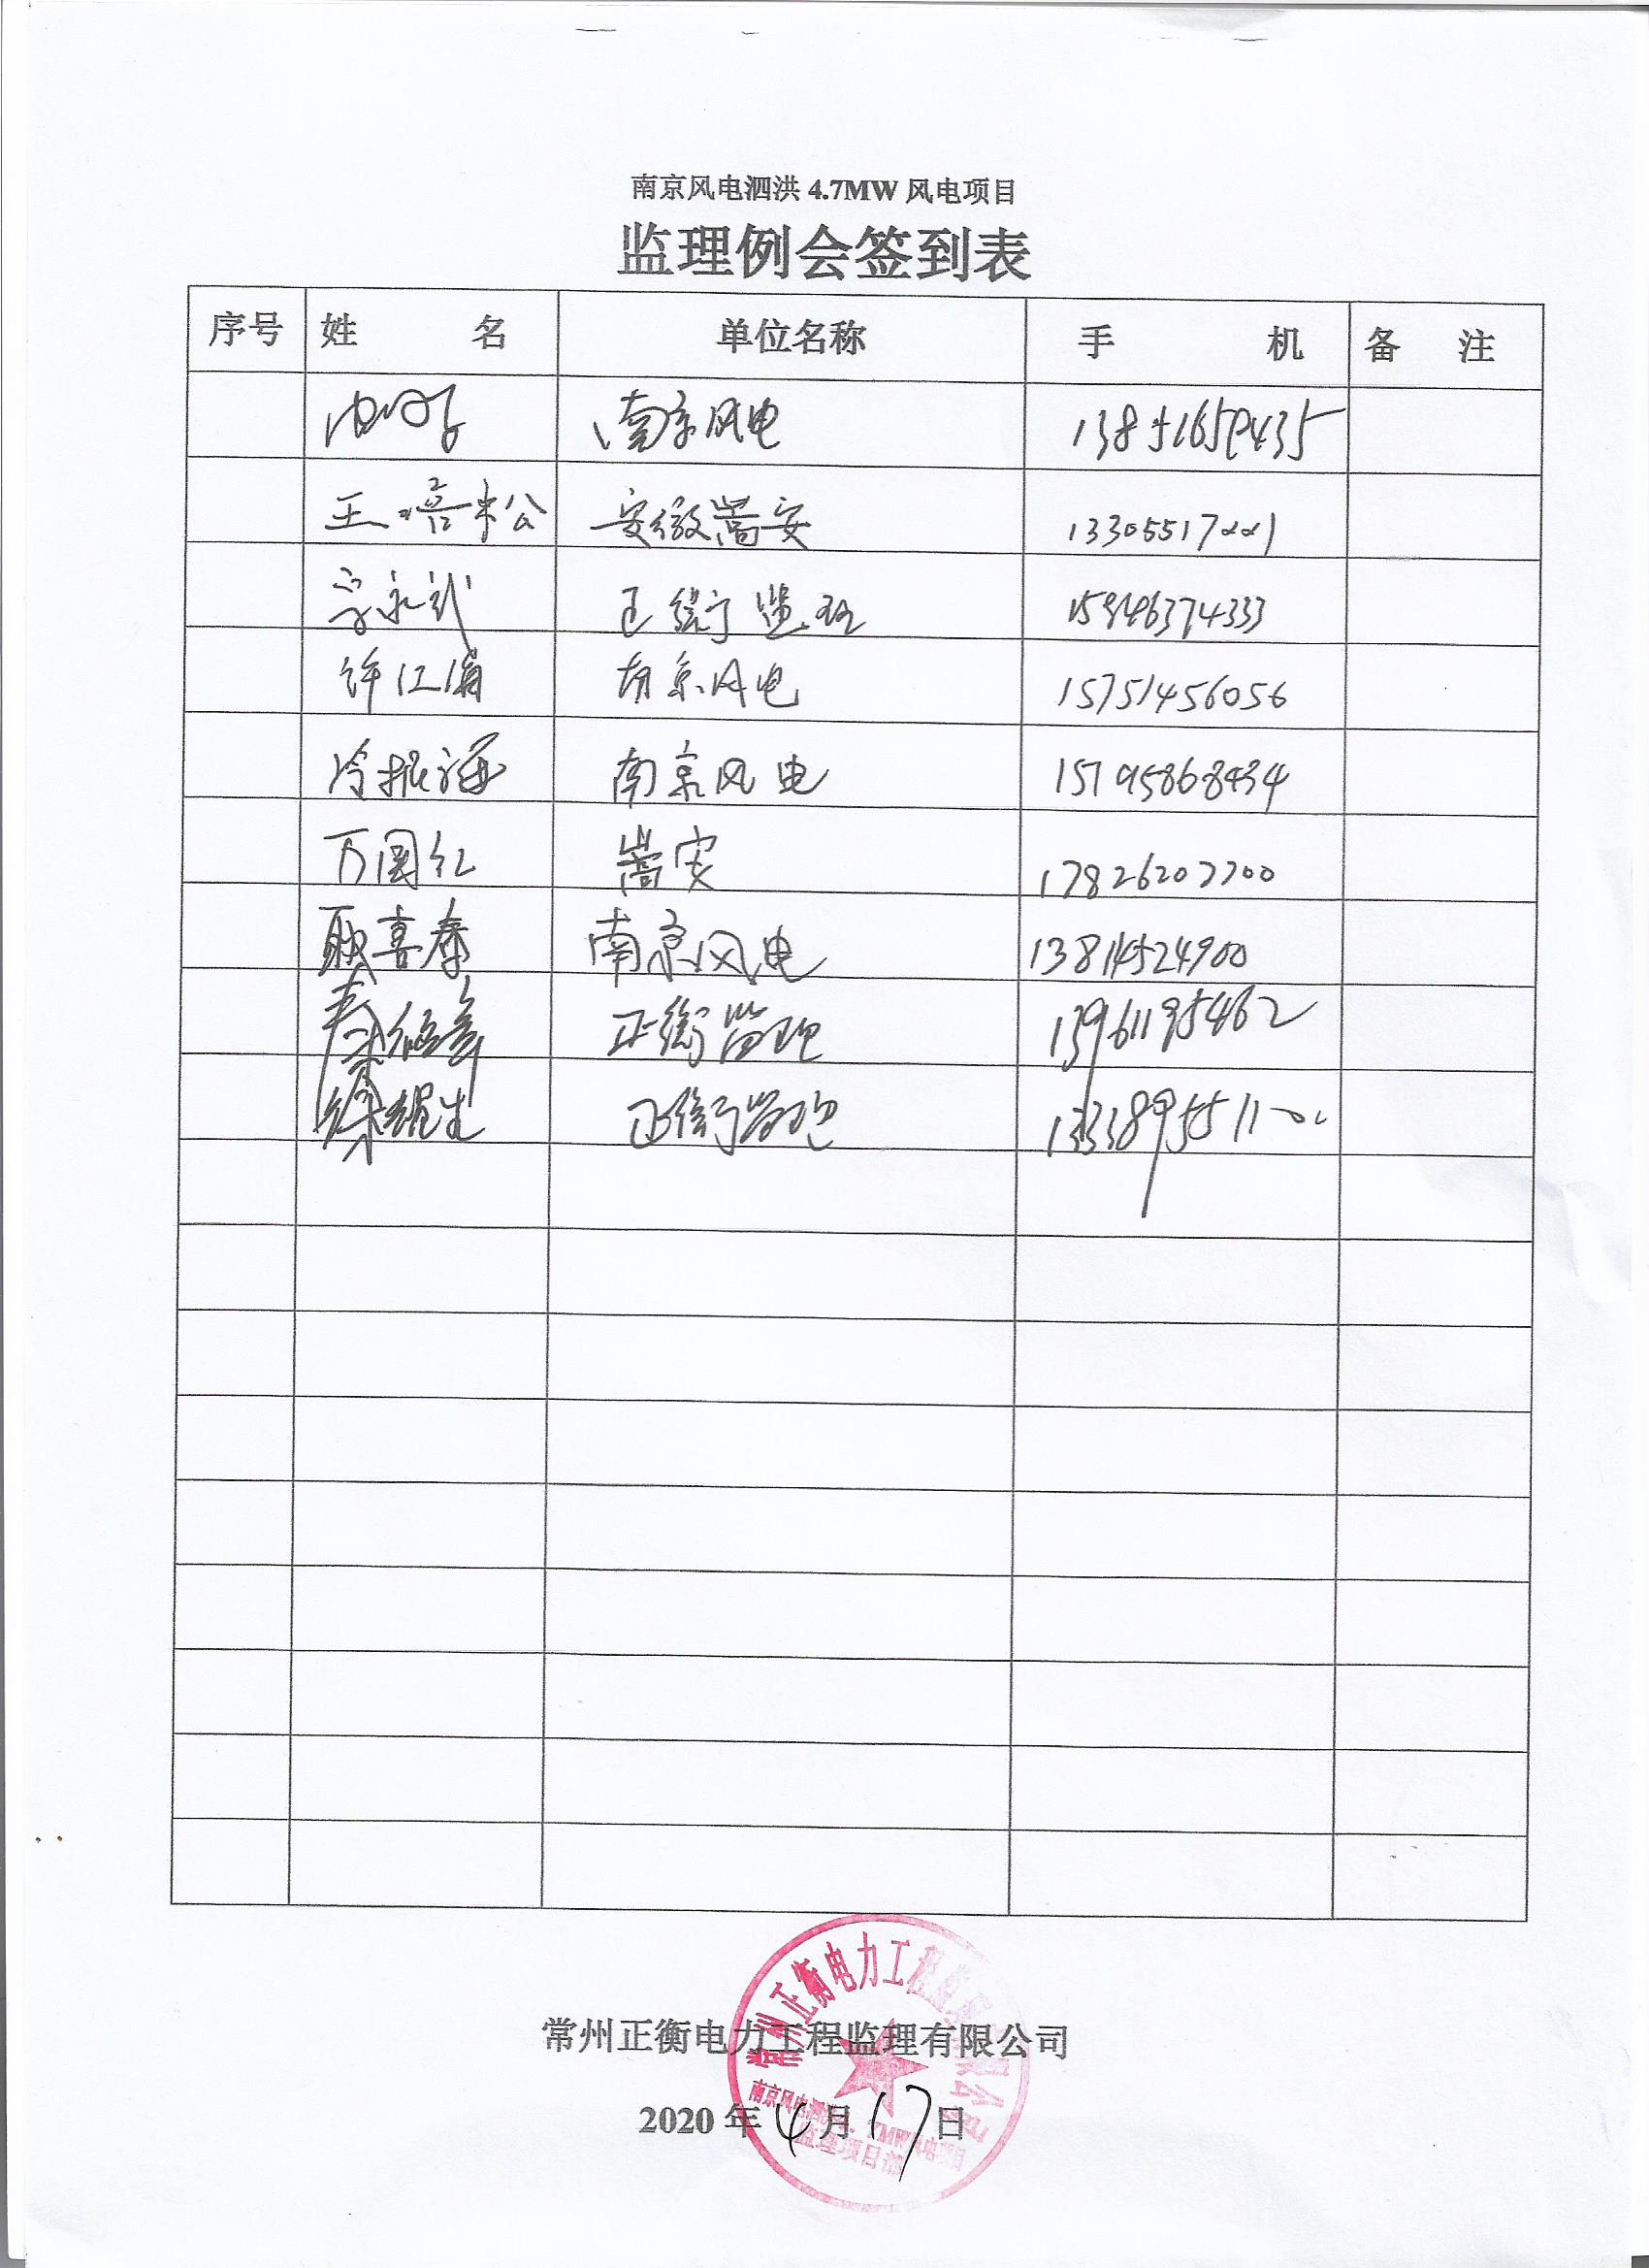 南京风电泗洪 4.7MW 风电项目
监理例会签到表
序号 姓 名 单位名称 手 机 备 注
南京风电 13851650435
王培松 安徽嵩安 13305517221
正衡监理 15946374333
许江 南京风电 15751456056
冷振海 南京风电 15195868434
万国红 嵩安 17826207700
耿喜春 南京风电 13814524900
秦 正衡监理 13961195462
徐 正衡监理
常州正衡电力工程监理有限公司
2020 年 4 月 17 日
常州正衡电力工程监理有限公司
南京风电泗洪4.7MW风电项目
监理项目部